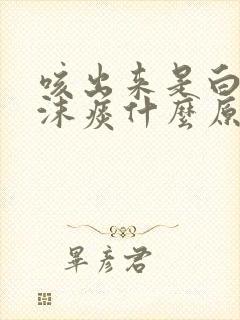 咳出来是白
沫痰什麼原
畢彦君